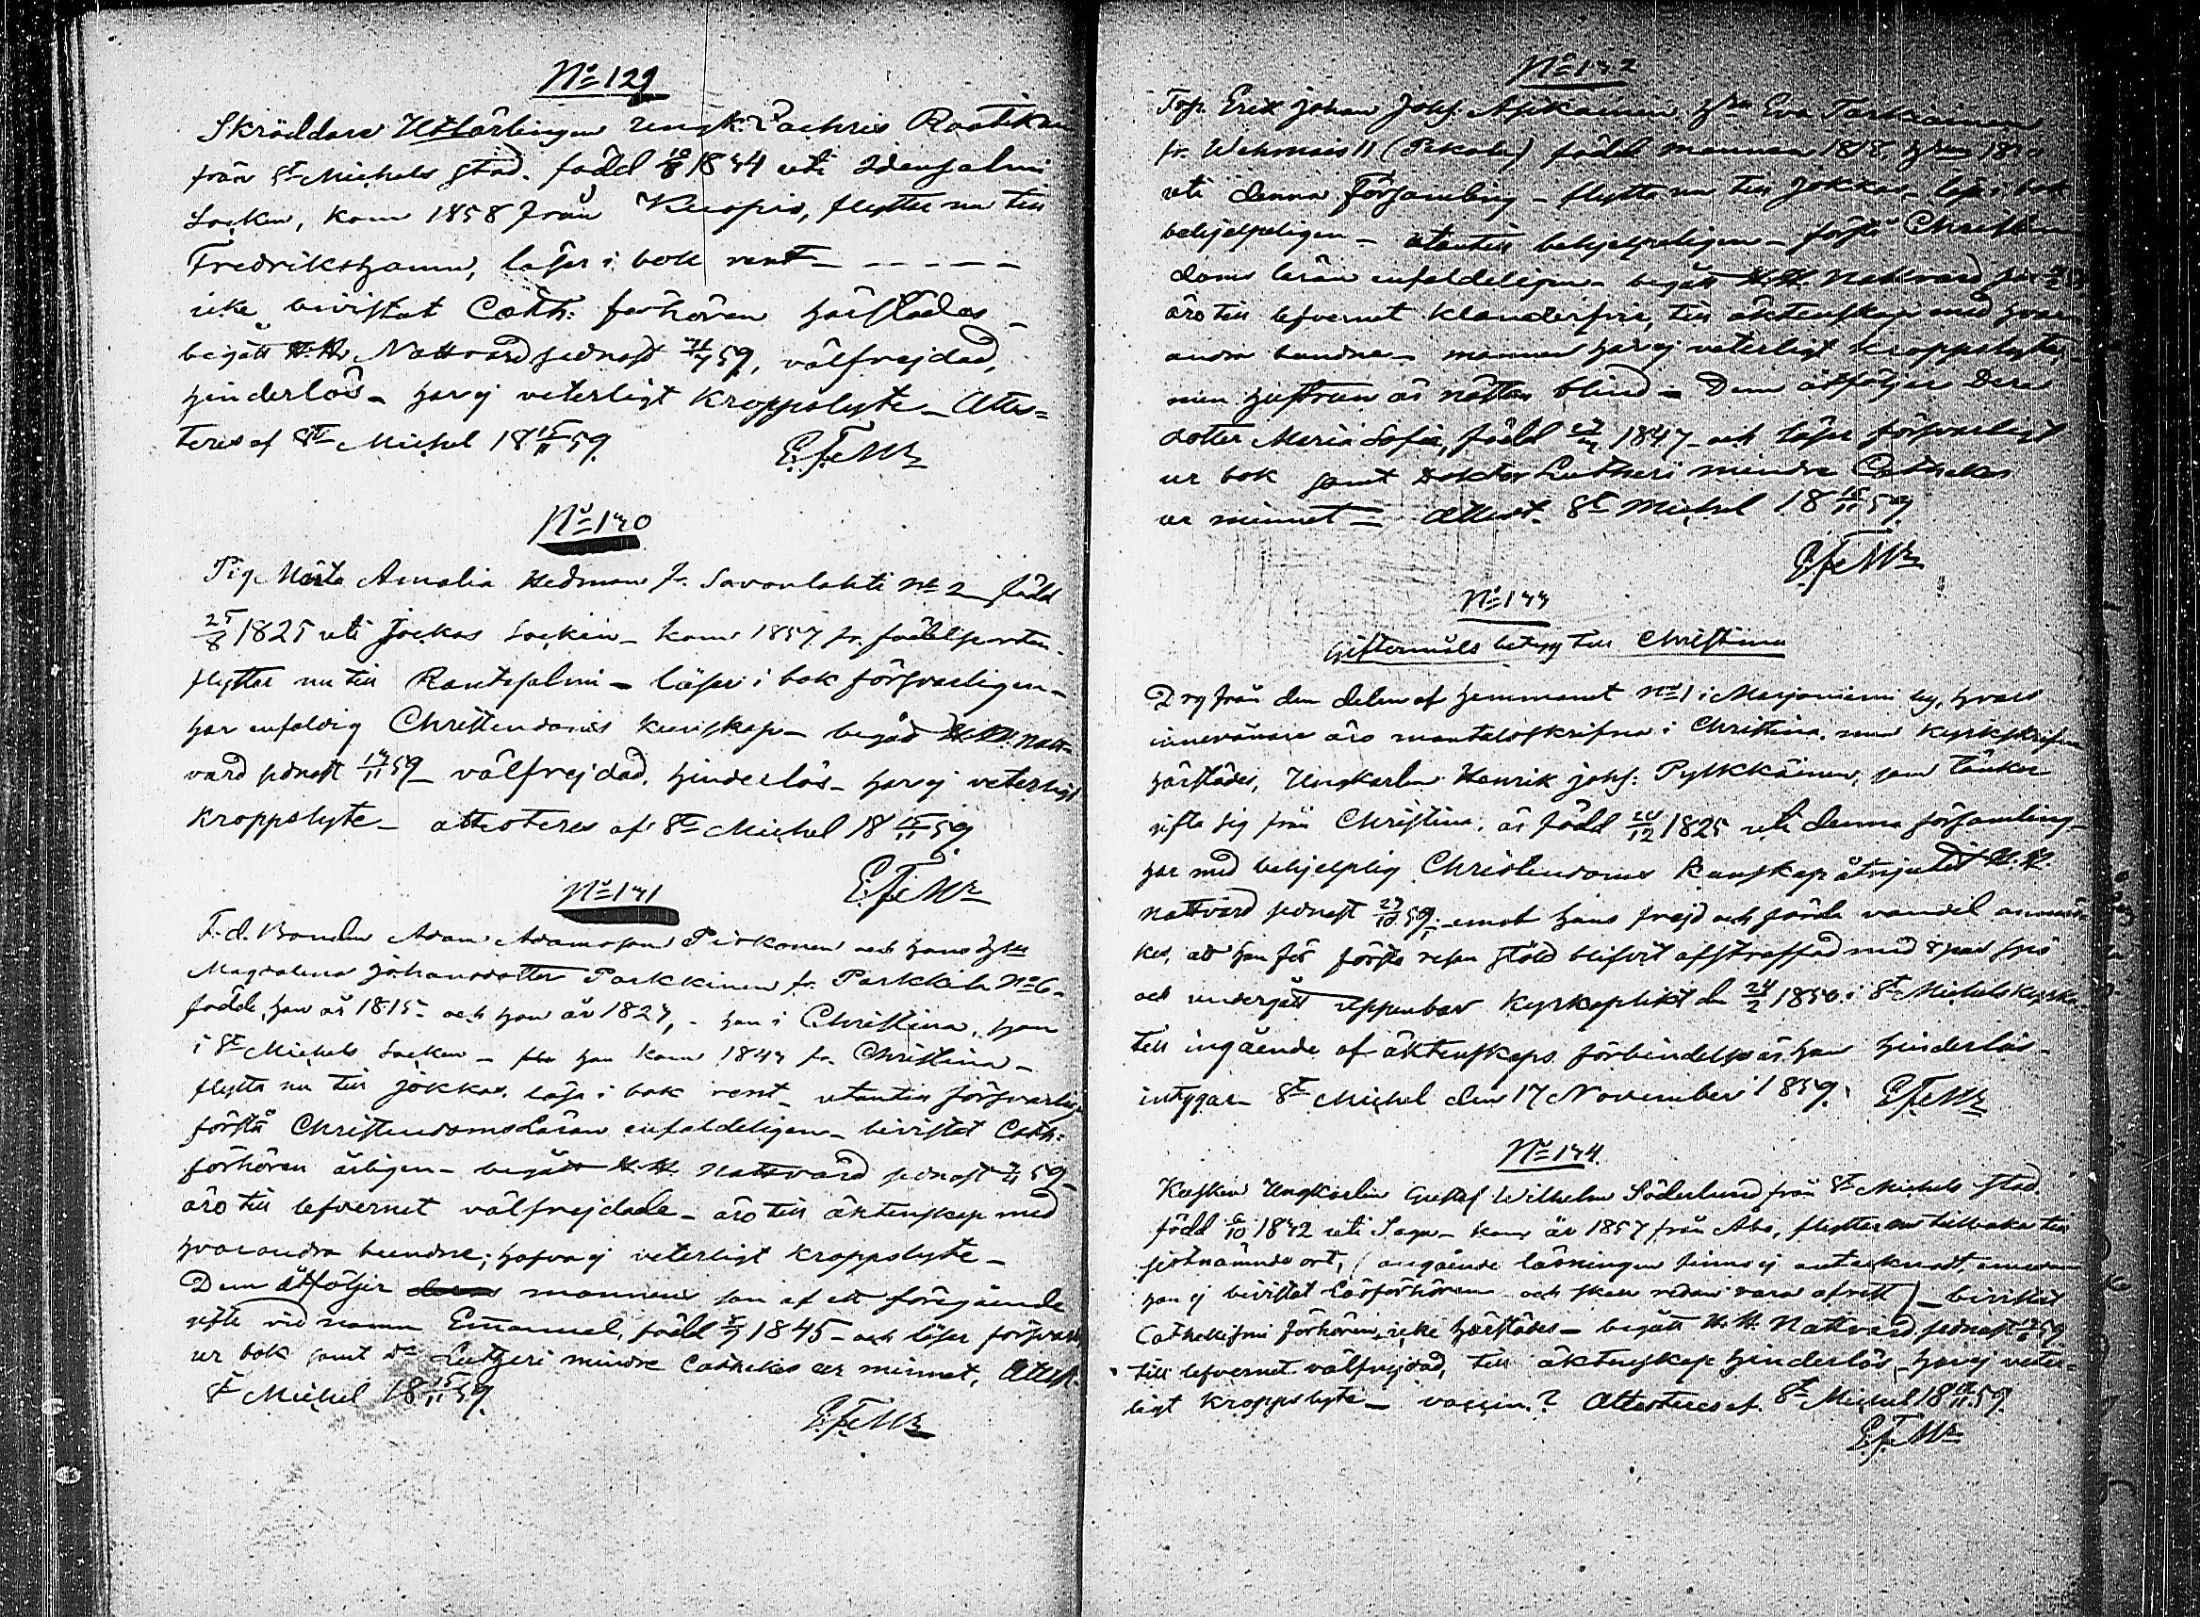 No 129
Skräddare Utlärlingen Ungk. Zachris Raatikan
från St Michels stad. född 10/8 1834 uti Idensalmi
Socken, kom 1858 från Kuopio, flyttar nu till
Fredrikshamn, läser i bok rent
icke bivistat Cath: förhören härstädes
begått H.H. Nattvard sednast 59, välfrejdad,
hinderlös - har ej veterligt kroppslyte - Attes=
teras af St Michel 18 15/11 59.
No 130
Pig. Maria Amalia Hedman fr. Savonlahti No 2 född
25/8 1825 uti Jockas Socken - kom 1857 fr. födelseorten
flyttar nu till Rantasalmi - läser i bok försvarligen -
har enfaldig Christendoms kunskap - begått H.H. Natt-
vard sednast 13/11 59 - välfrejdad, hinderlös - har ej veterligt
kroppslyte - attesteras af St Michel 18 15/11 59.
No 131
F.d. Bonden Adam Adamsson Pirkonen och hans hu
Magdalena Johansdotter Parkkinen fr. Parkkila No 6 -
födde, han år 1815 - och hon år 1827, - han i Christina, hon
i St Michels Socken - han kom 1843 fr. Christina -
flytta nu till Jokkas, läsa i bok rent - utantill försvarlig
förstå Christendoms Läran enfaldeligen - bivistat Cath:
förhören årligen - begått H.H. Nattvard sednast 59 -
äro till lefvernet välfrejdade - äro till äktenskap med
hvarandra bundne; hafva ej veterligt kroppslyte -
Dem åtföljer mannens son af ett föregående
gifte vid namn Emanuel, född 1845 - och läser försvarl
ur bok samt Dr Lutheri mindre Cathekes ur minnet, Attest.
St Michel 18 15/11 59.
No 132
Torp. Erik Johan Johs. Asikainen hu Eva Tarkiainen
fr. (Pekola) född mannen 1818, hu
uti denna Församling - flytta nu till Jokkas - läsa i bok
behjelpeligen - utantill behjelpeligen - förstå Christen
doms läran enfaldeligen - begått H.H. Nattvard
äro till lefvernet klanderfrie, till äktenskap med hvar
andra bundne - mannen har ej veterligt kroppslyte,
men hustrun är nästan blind - Dem åtföljer Dera
dotter Maria Sofia, född 1847 - och läser försvarligt
ur bok samt Doktor Lutheri mindre Cathekes
ur minnet = Attest. St Michel 18 15/11 59.
No 133
Giftermåls betyg till Christina
Drg från den delen af hemmanet No 1 i Marjoniemi by, hvars
innevånare äro mantalsskrifna i Christina, men kyrkskrifna
härstädes, Ungkarlen Henrik Johs: Pylkkäinen, som tänker
gifta sig från Christina, är född 20/12 1825 uti denna församling -
har med behjelplig Christendoms kunskap åtnjutit H.H.
Nattvard sednast 23/10 59. - emot hans frejd och förda vandel anmär
kes, att han för första resan stöld blifvit afstraffad med 8 par spö
och undergått uppenbar Kyrkoplikt den 24/2 1850 i St Michels kyrka.
till ingående af äktenskaps förbindelse är han hinderlös -
intygar - St Michel den 17 November 1859.
No 134.
Kusken Ungkarlen Gustaf Wilhelm Söderlund från St Michels stad.
född 6/10 1832 uti Sagu - kom år 1857 från Åbo, flyttar nu tillbaka till
sistnämnde ort, (angående läsningen finnes ej antecknadt, emedan
han ej bivistat Läsförhören och skall redan vara afrest) - bivistat
Cathekismi förhören icke härstädes - begått H.H. Nattvard sednast 59
till lefvernet välfrejdad, till äktenskap hinderlös - har ej veter-
ligt kroppslyte - vaccin.? Attesteras af. St Michel 18 59.